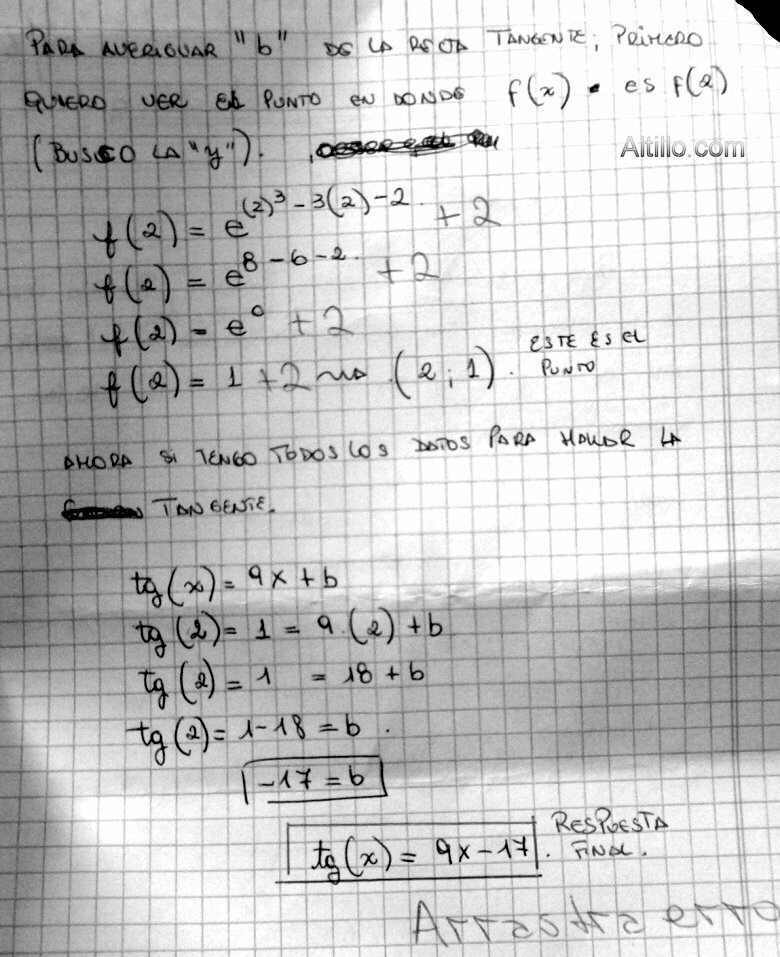 PARA AVERIGUAR "b" DE LA RECTA TANGENTE, PRIMERO
QUIERO VER EL PUNTO EN DONDE f(x) es f(2)
(BUSCO LA "y").
Altillo.com
f(2) = e^(2)³ - 3(2) - 2 + 2
f(2) = e^8 - 6 - 2 + 2
f(2) = e^0 + 2
f(2) = 1 + 2 (2 ; 1). ESTE ES EL
PUNTO
AHORA SI TENGO TODOS LOS DATOS PARA HALLAR LA
TANGENTE.
tg(x) = 9x + b
tg(2) = 1 = 9.(2) + b
tg(2) = 1 = 18 + b
tg(2) = 1 - 18 = b.
-17 = b
tg(x) = 9x - 17. RESPUESTA
FINAL.
Arrastra erro